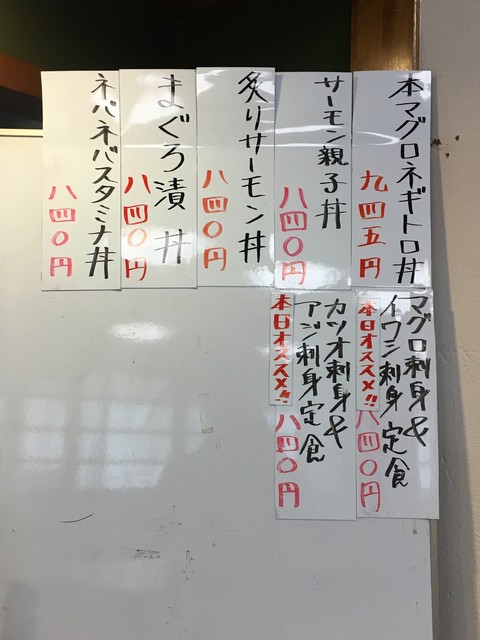 本マグロネギトロ丼
九四五円
サーモン親子丼
八四〇円
炙りサーモン丼
八四〇円
まぐろ漬丼
八四〇円
ネバネバスタミナ丼
八四〇円
マグロ刺身&
イワシ刺身定食
本日オススメ!!
八四〇円
カツオ刺身&
アジ刺身定食
本日オススメ!!
八四〇円